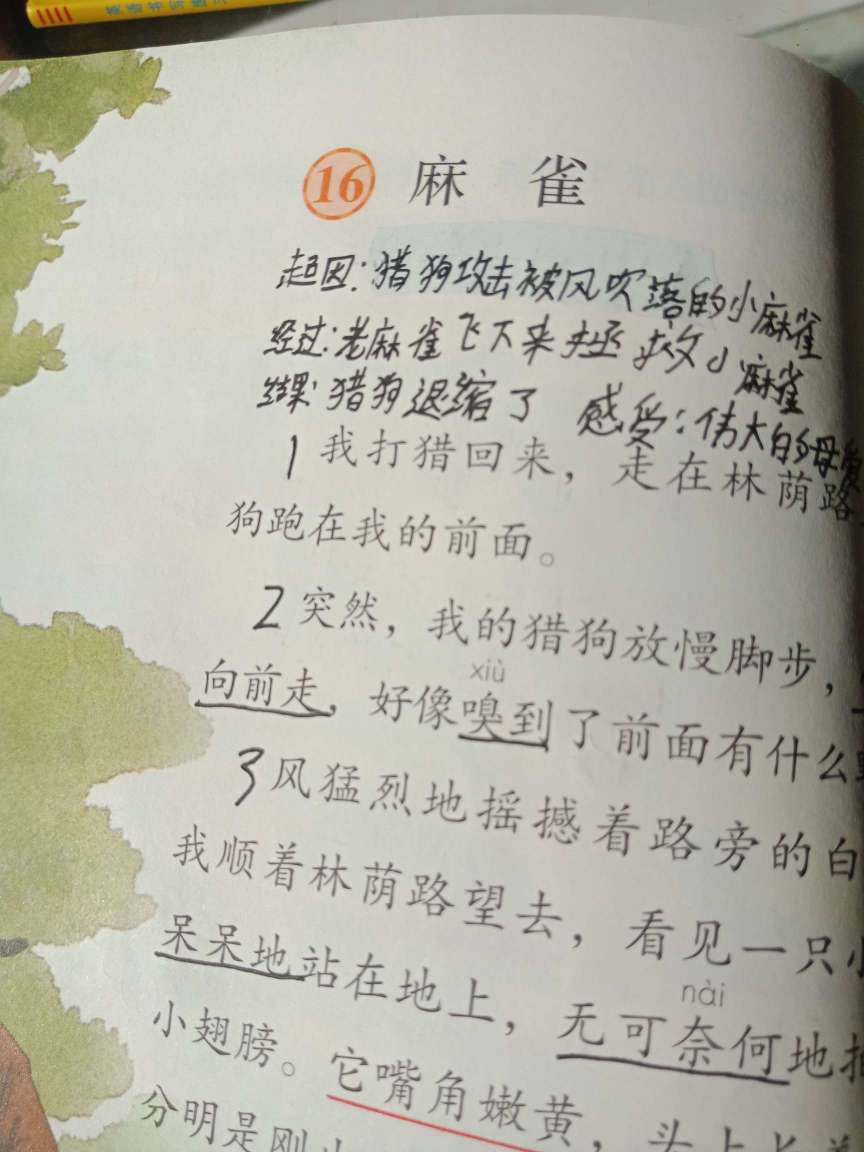 16 麻雀
起因：猎狗攻击被风吹落的小麻雀
经过：老麻雀飞下来拯救小麻雀
结果：猎狗退缩了 感受：伟大的母爱
1 我打猎回来，走在林荫路
狗跑在我的前面。
2 突然，我的猎狗放慢脚步，
xiù
向前走，好像嗅到了前面有什么
3 风猛烈地摇撼着路旁的白
我顺着林荫路望去，看见一只小
nài
呆呆地站在地上，无可奈何地拍
小翅膀。它嘴角嫩黄，头上长着
分明是刚